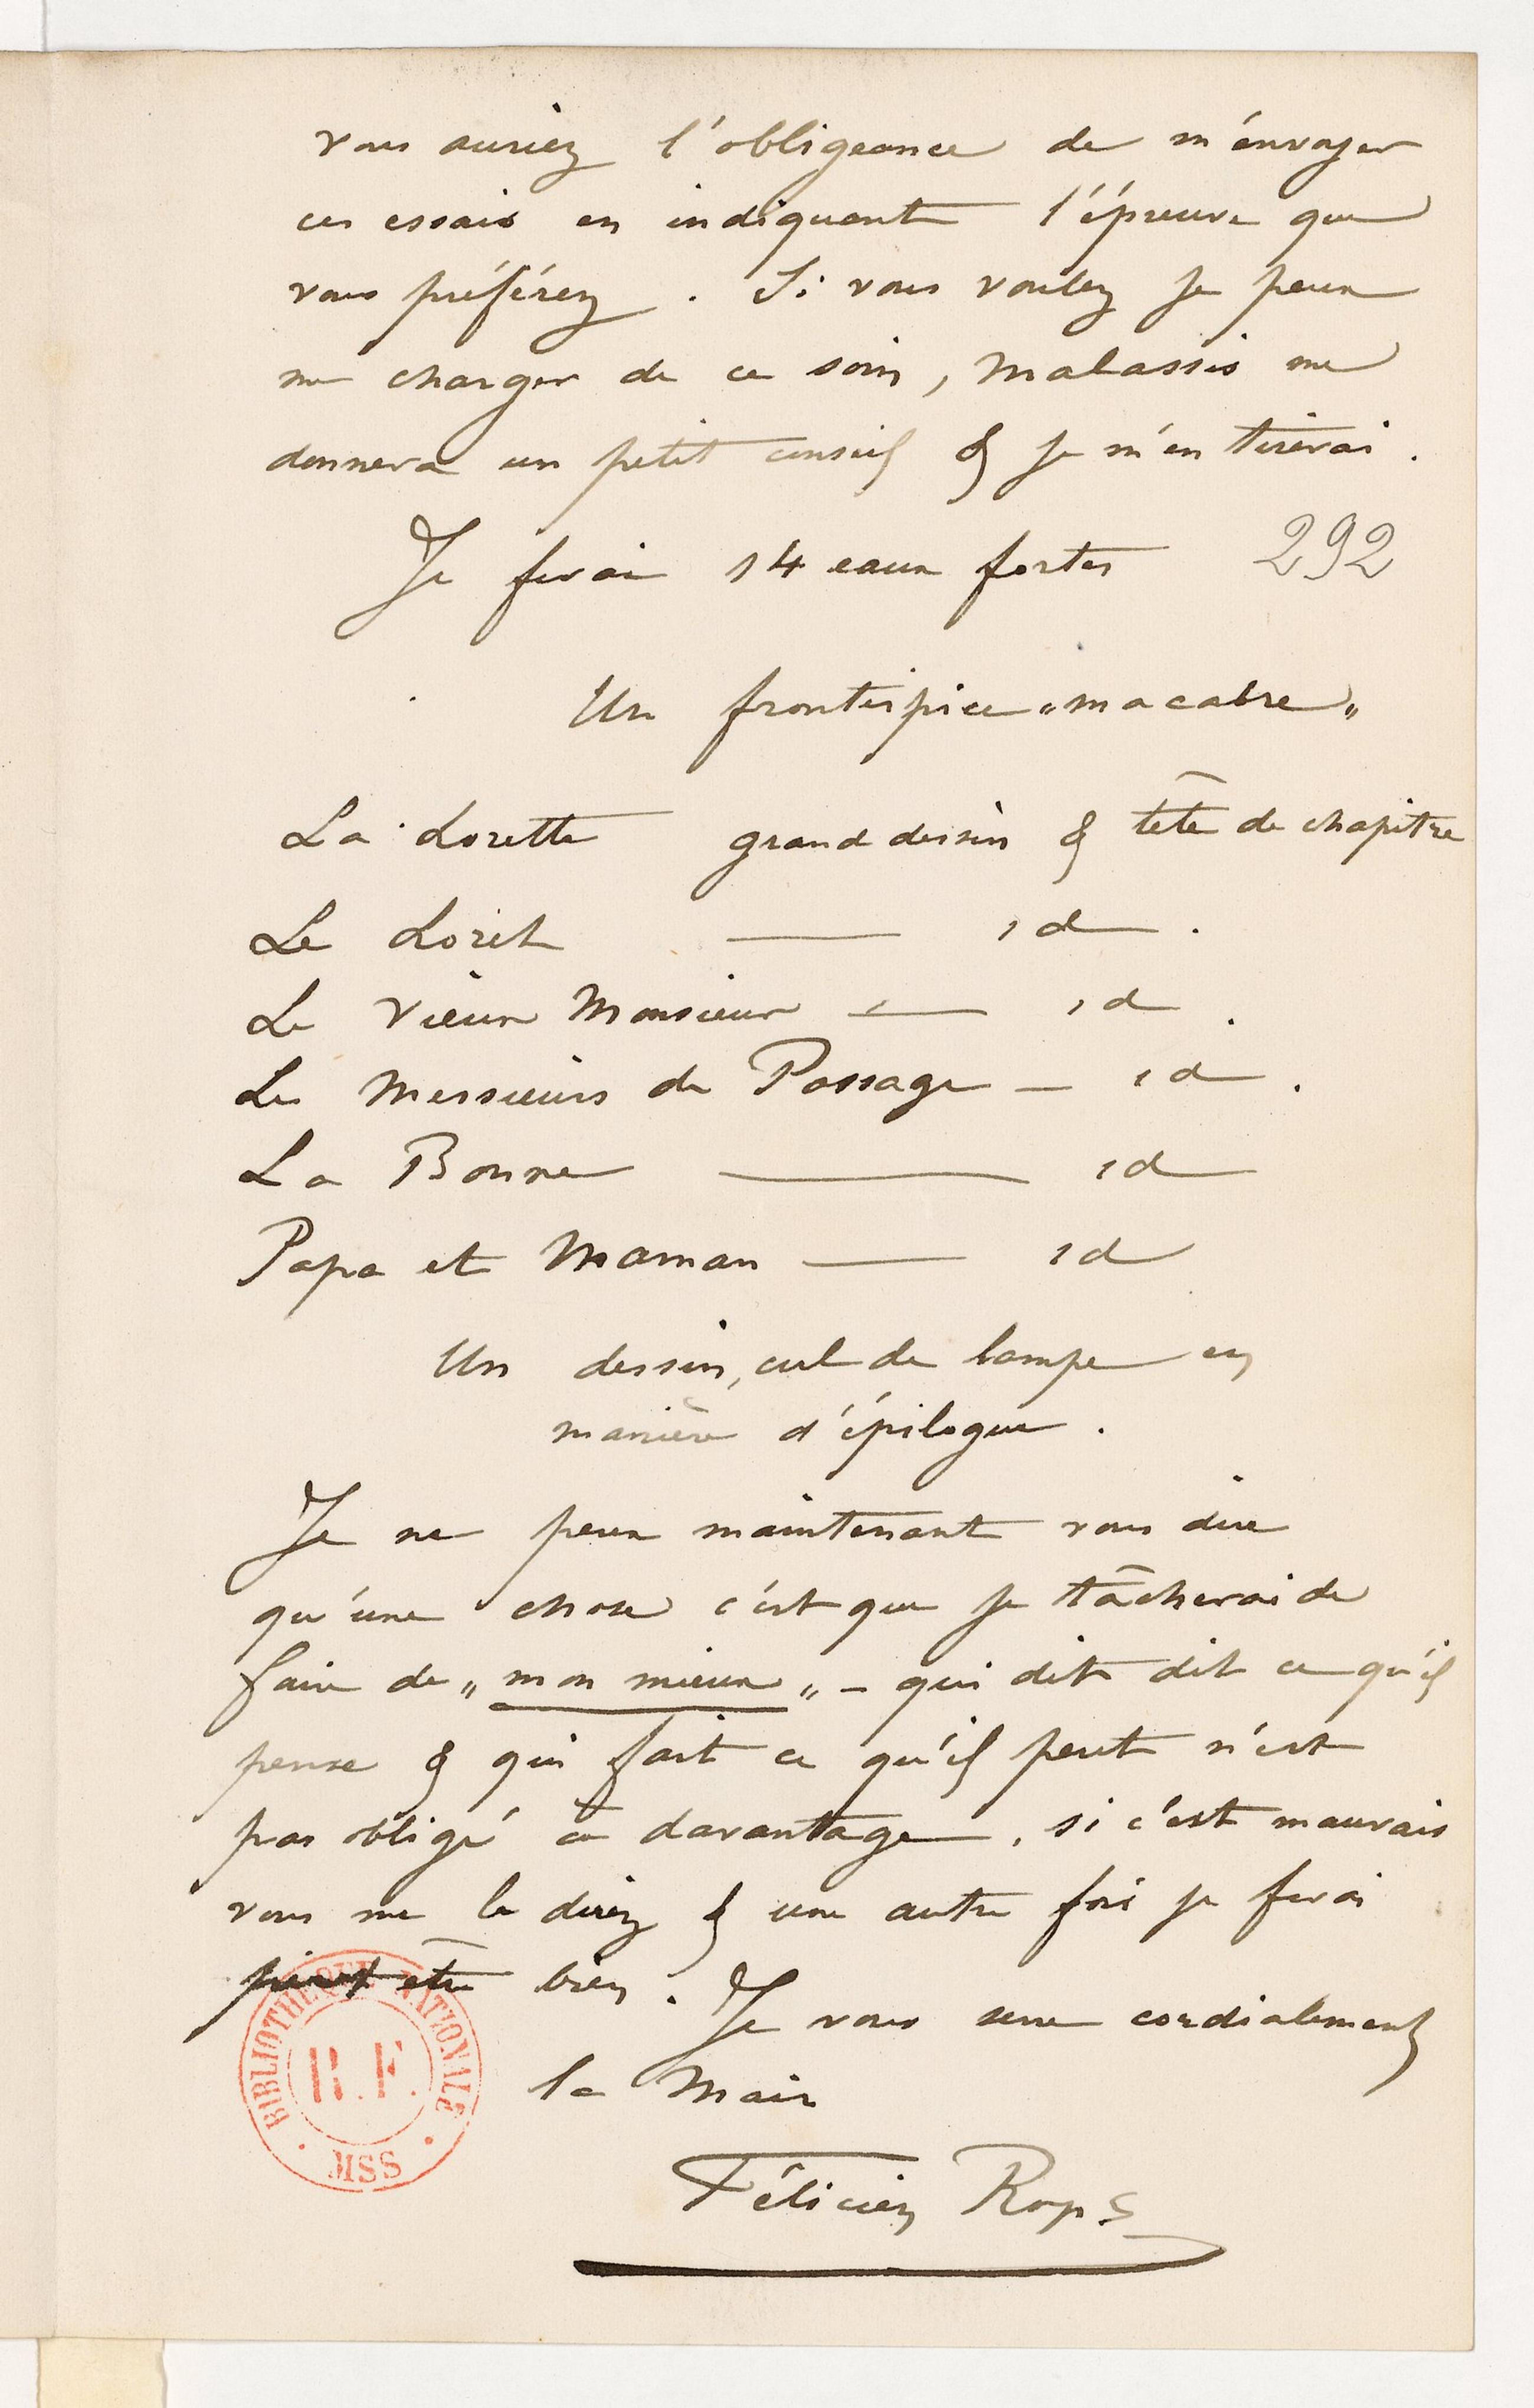 vous auriez l'obligeance de m'envoyer
ces essais en indiquant l'épreuve que
vous préférez. Si vous voulez je peux
me charger de ce soin, Malassis me
donnera un petit conseil & je m'en tirerai.
Je ferai 14 eaux fortes 292
Un frontispice „macabre„
La Lorette grand dessin & tête de chapitre
Le Loret — id.
Le Vieux Monsieur — id.
Les Messieurs de Passage — id.
La Bonne — id
Papa et Maman — id
Un dessin, cul de lampe en
manière d'épilogue.
Je ne peux maintenant vous dire
qu'une chose c'est que je tâcherai de
faire de „mon mieux„ – qui dit dit ce qu'il
pense & qui fait ce qu'il peut n'est
pas obligé à davantage. si c'est mauvais
vous me le direz & une autre fois je ferai
peut être bien. Je vous serre cordialement
la Main
Félicien Rops
BIBLIOTHEQUE NATIONALE
R.F.
MSS